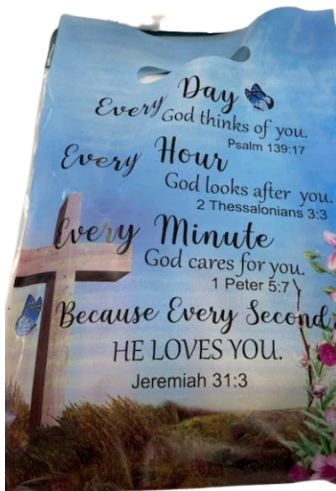 Every Day
God thinks of you.
Psalm 139:17
Every Hour
God looks after you.
2 Thessalonians 3:3
Every Minute
God cares for you.
1 Peter 5:7
Because Every Second
HE LOVES YOU.
Jeremiah 31:3